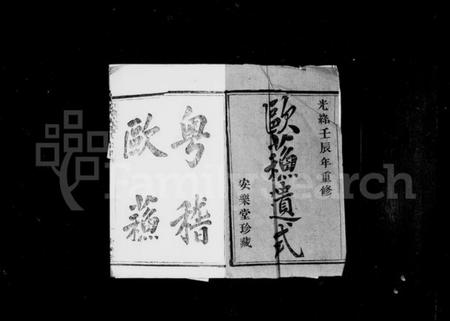 光緒壬辰年重修
歐蘇遺式
安樂堂珍藏
粤稽
歐蘇
FamilySearch